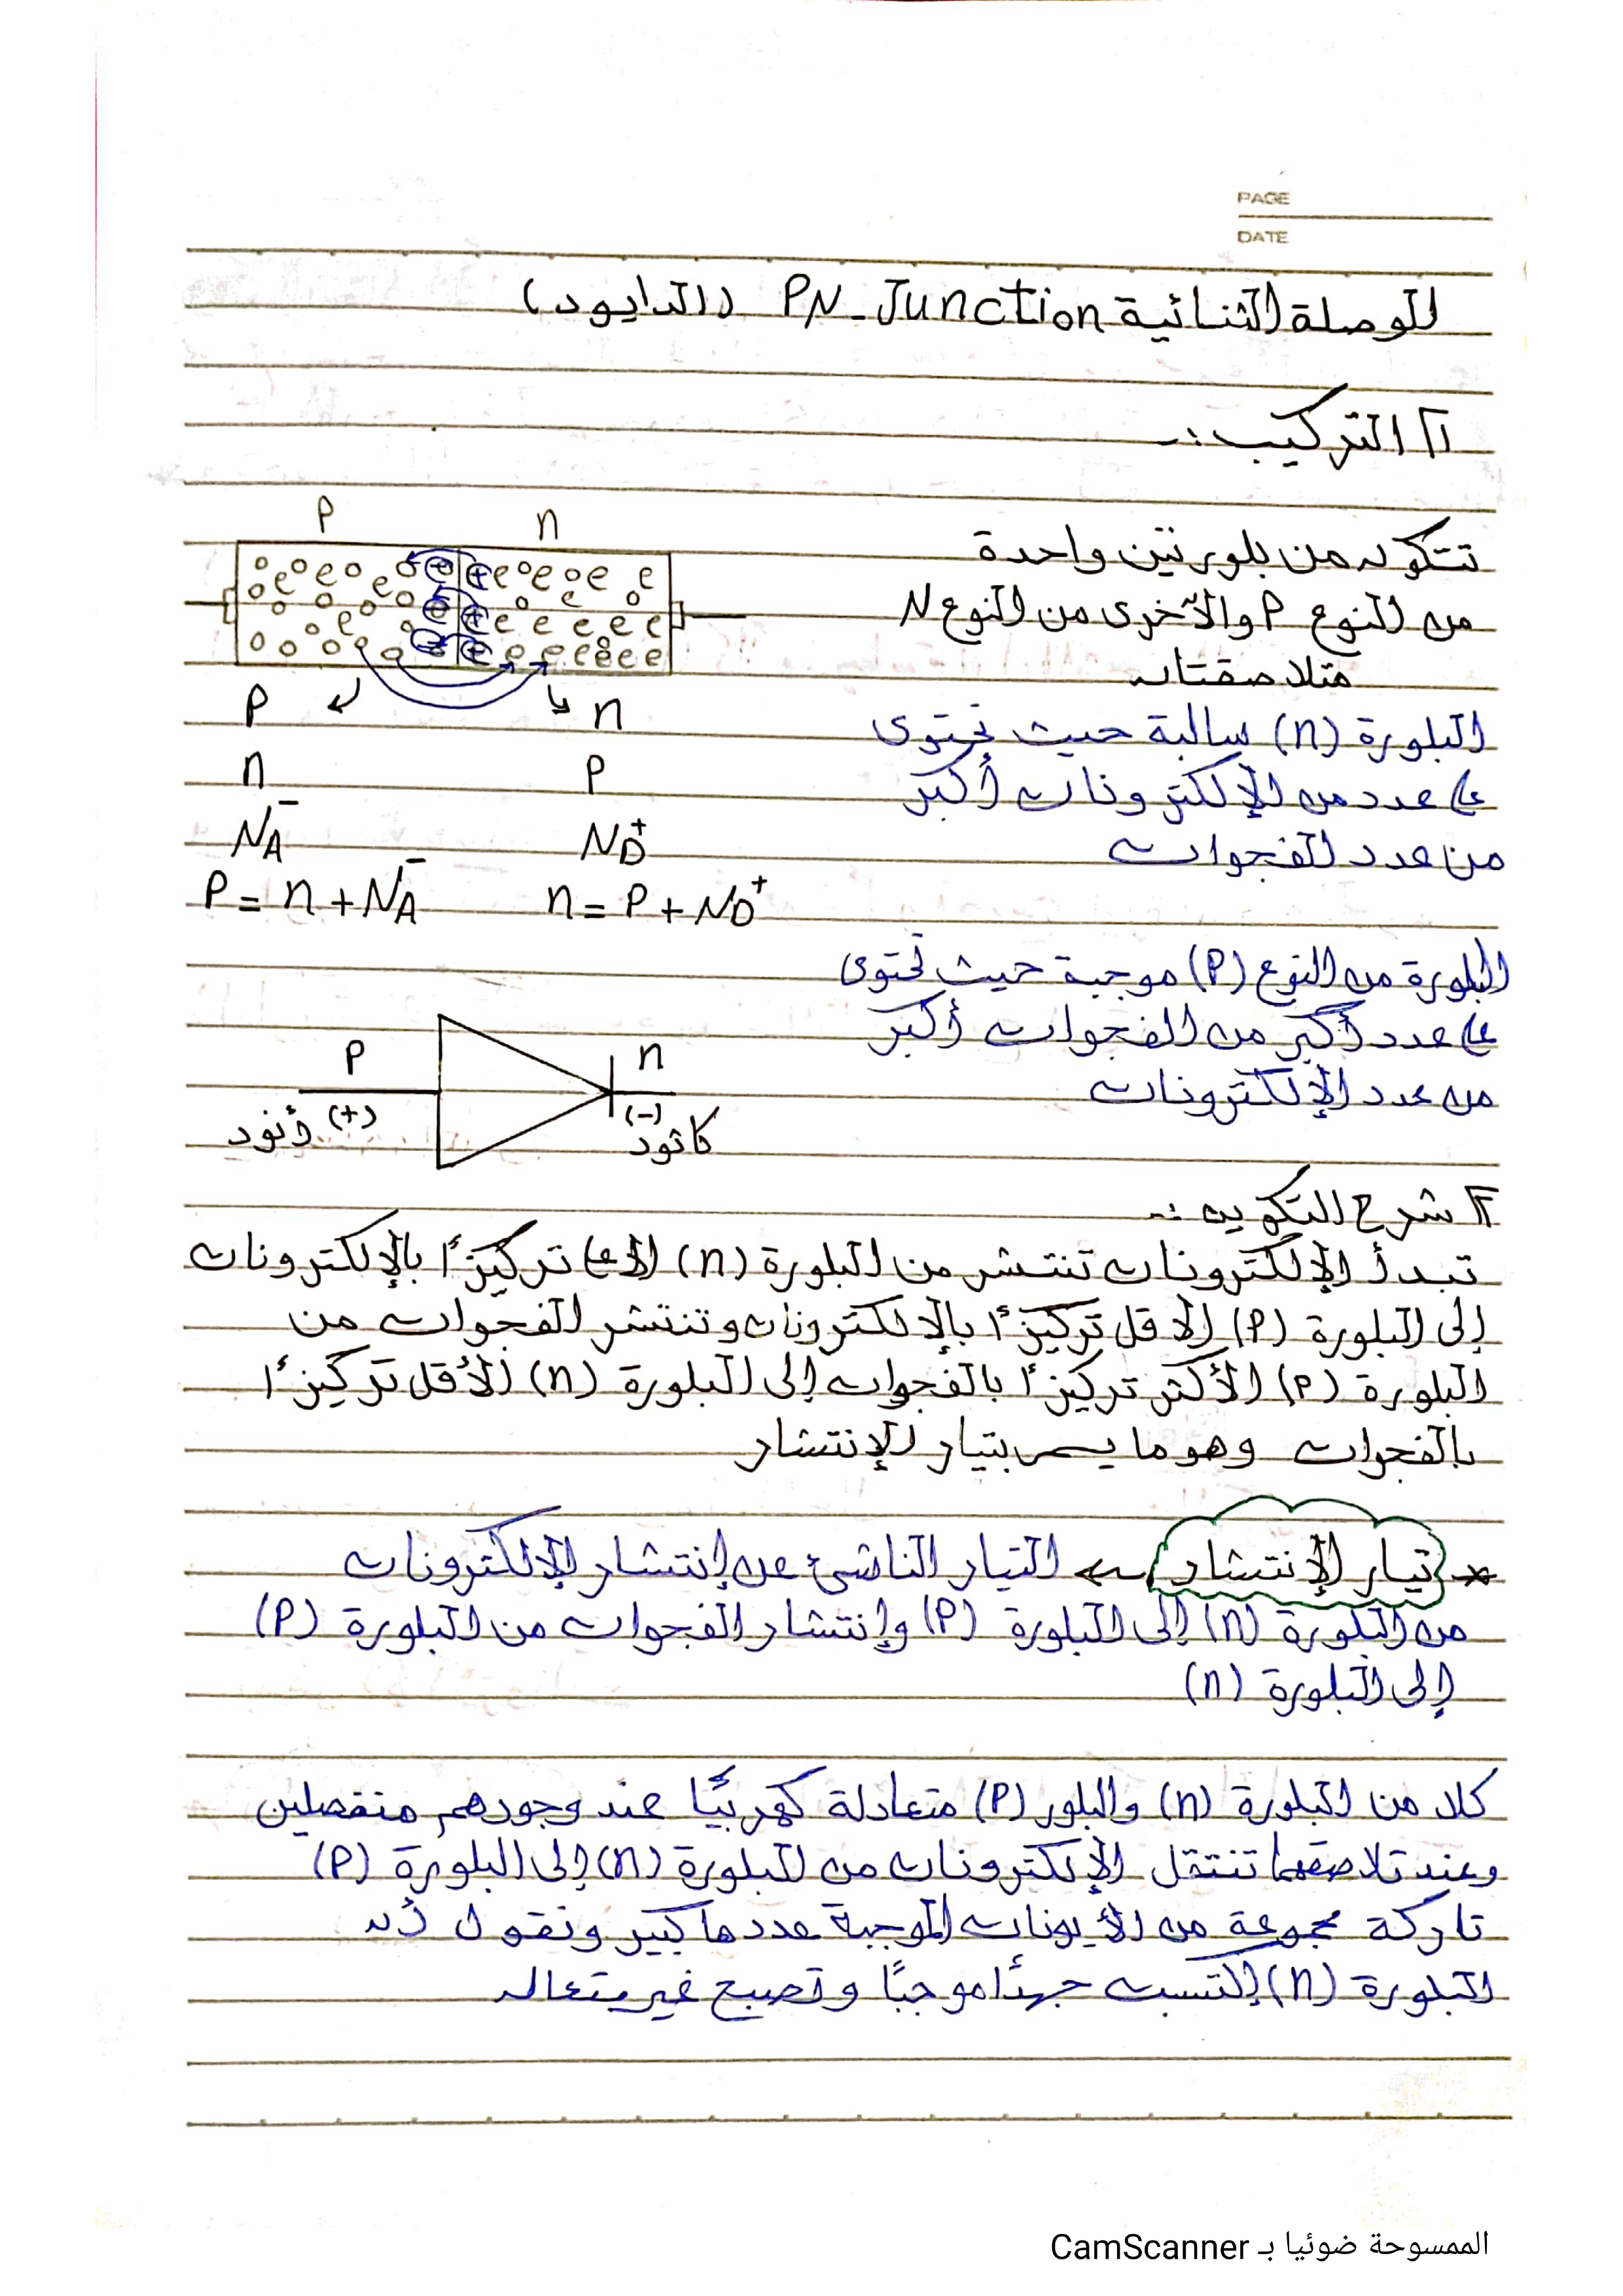 PAGE
DATE
الوصلة الثنائية PN-Junction (الدايود)
١] التركيب :-
تتكون من بلورتين واحدة
من النوع P والآخرى من النوع N
متلاصقتان
P n
P n
n P
NA⁻ ND⁺
P = n + NA⁻ n = P + ND⁺
البلورة (n) سالبة حيث تحتوى
على عدد من الإلكترونات أكبر
من عدد الفجوات
البلورة من النوع (P) موجبة حيث تحتوى
على عدد أكبر من الفجوات أكبر
من عدد الإلكترونات
P n
(+) أنود (-) كاثود
٢] شرح التكوين :-
تبدأ الإلكترونات تنتشر من البلورة (n) الأعلى تركيزًا بالإلكترونات
إلى البلورة (P) الأقل تركيزًا بالإلكترونات وتنتشر الفجوات من
البلورة (P) الأكثر تركيزًا بالفجوات إلى البلورة (n) الأقل تركيزًا
بالفجوات وهو ما يسمى بتيار الإنتشار
* تيار الإنتشار ← التيار الناشئ عن إنتشار الإلكترونات
من البلورة (n) إلى البلورة (P) وإنتشار الفجوات من البلورة (P)
إلى البلورة (n)
كلا من البلورة (n) والبلور (P) متعادلة كهربيًا عند وجودهم منفصلين
وعند تلاصقهما تنتقل الإلكترونات من البلورة (n) إلى البلورة (P)
تاركة مجموعة من الأيونات الموجبة عددها كبير ونقول أن
البلورة (n) إكتسبت جهدًا موجبًا وتصبح غير متعادلة
الممسوحة ضوئيا بـ CamScanner